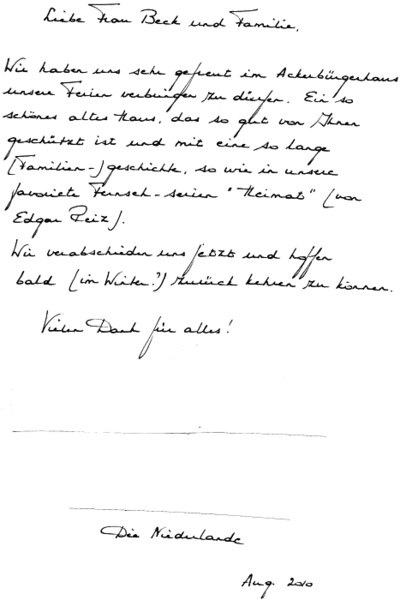 Liebe Frau Beck und Familie,
Wir haben uns sehr gefreut im Ackerbürgerhaus
unsere Ferien verbringen zu dürfen. Ein so
schönes altes Haus, das so gut von Ihnen
geschützt ist und mit eine so lange
(Familien-)geschichte, so wie in unsere
favoriete Fernseh-serien "Heimat" (von
Edgar Reiz).
Wir verabschieden uns jetzt und hoffen
bald (im Winter?) zurück kehren zu können.
Vielen Dank für alles!
Die Niederlande
Aug. 2010